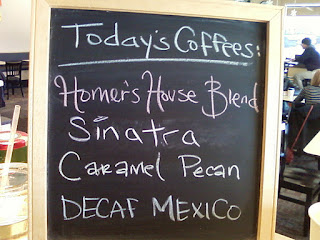 Today's Coffees:
Homer's House Blend
Sinatra
Caramel Pecan
DECAF MEXICO